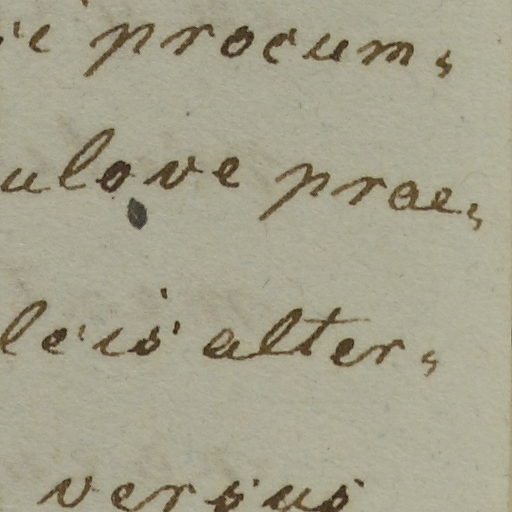 procum,
ulove prae,
leis alter,
versus